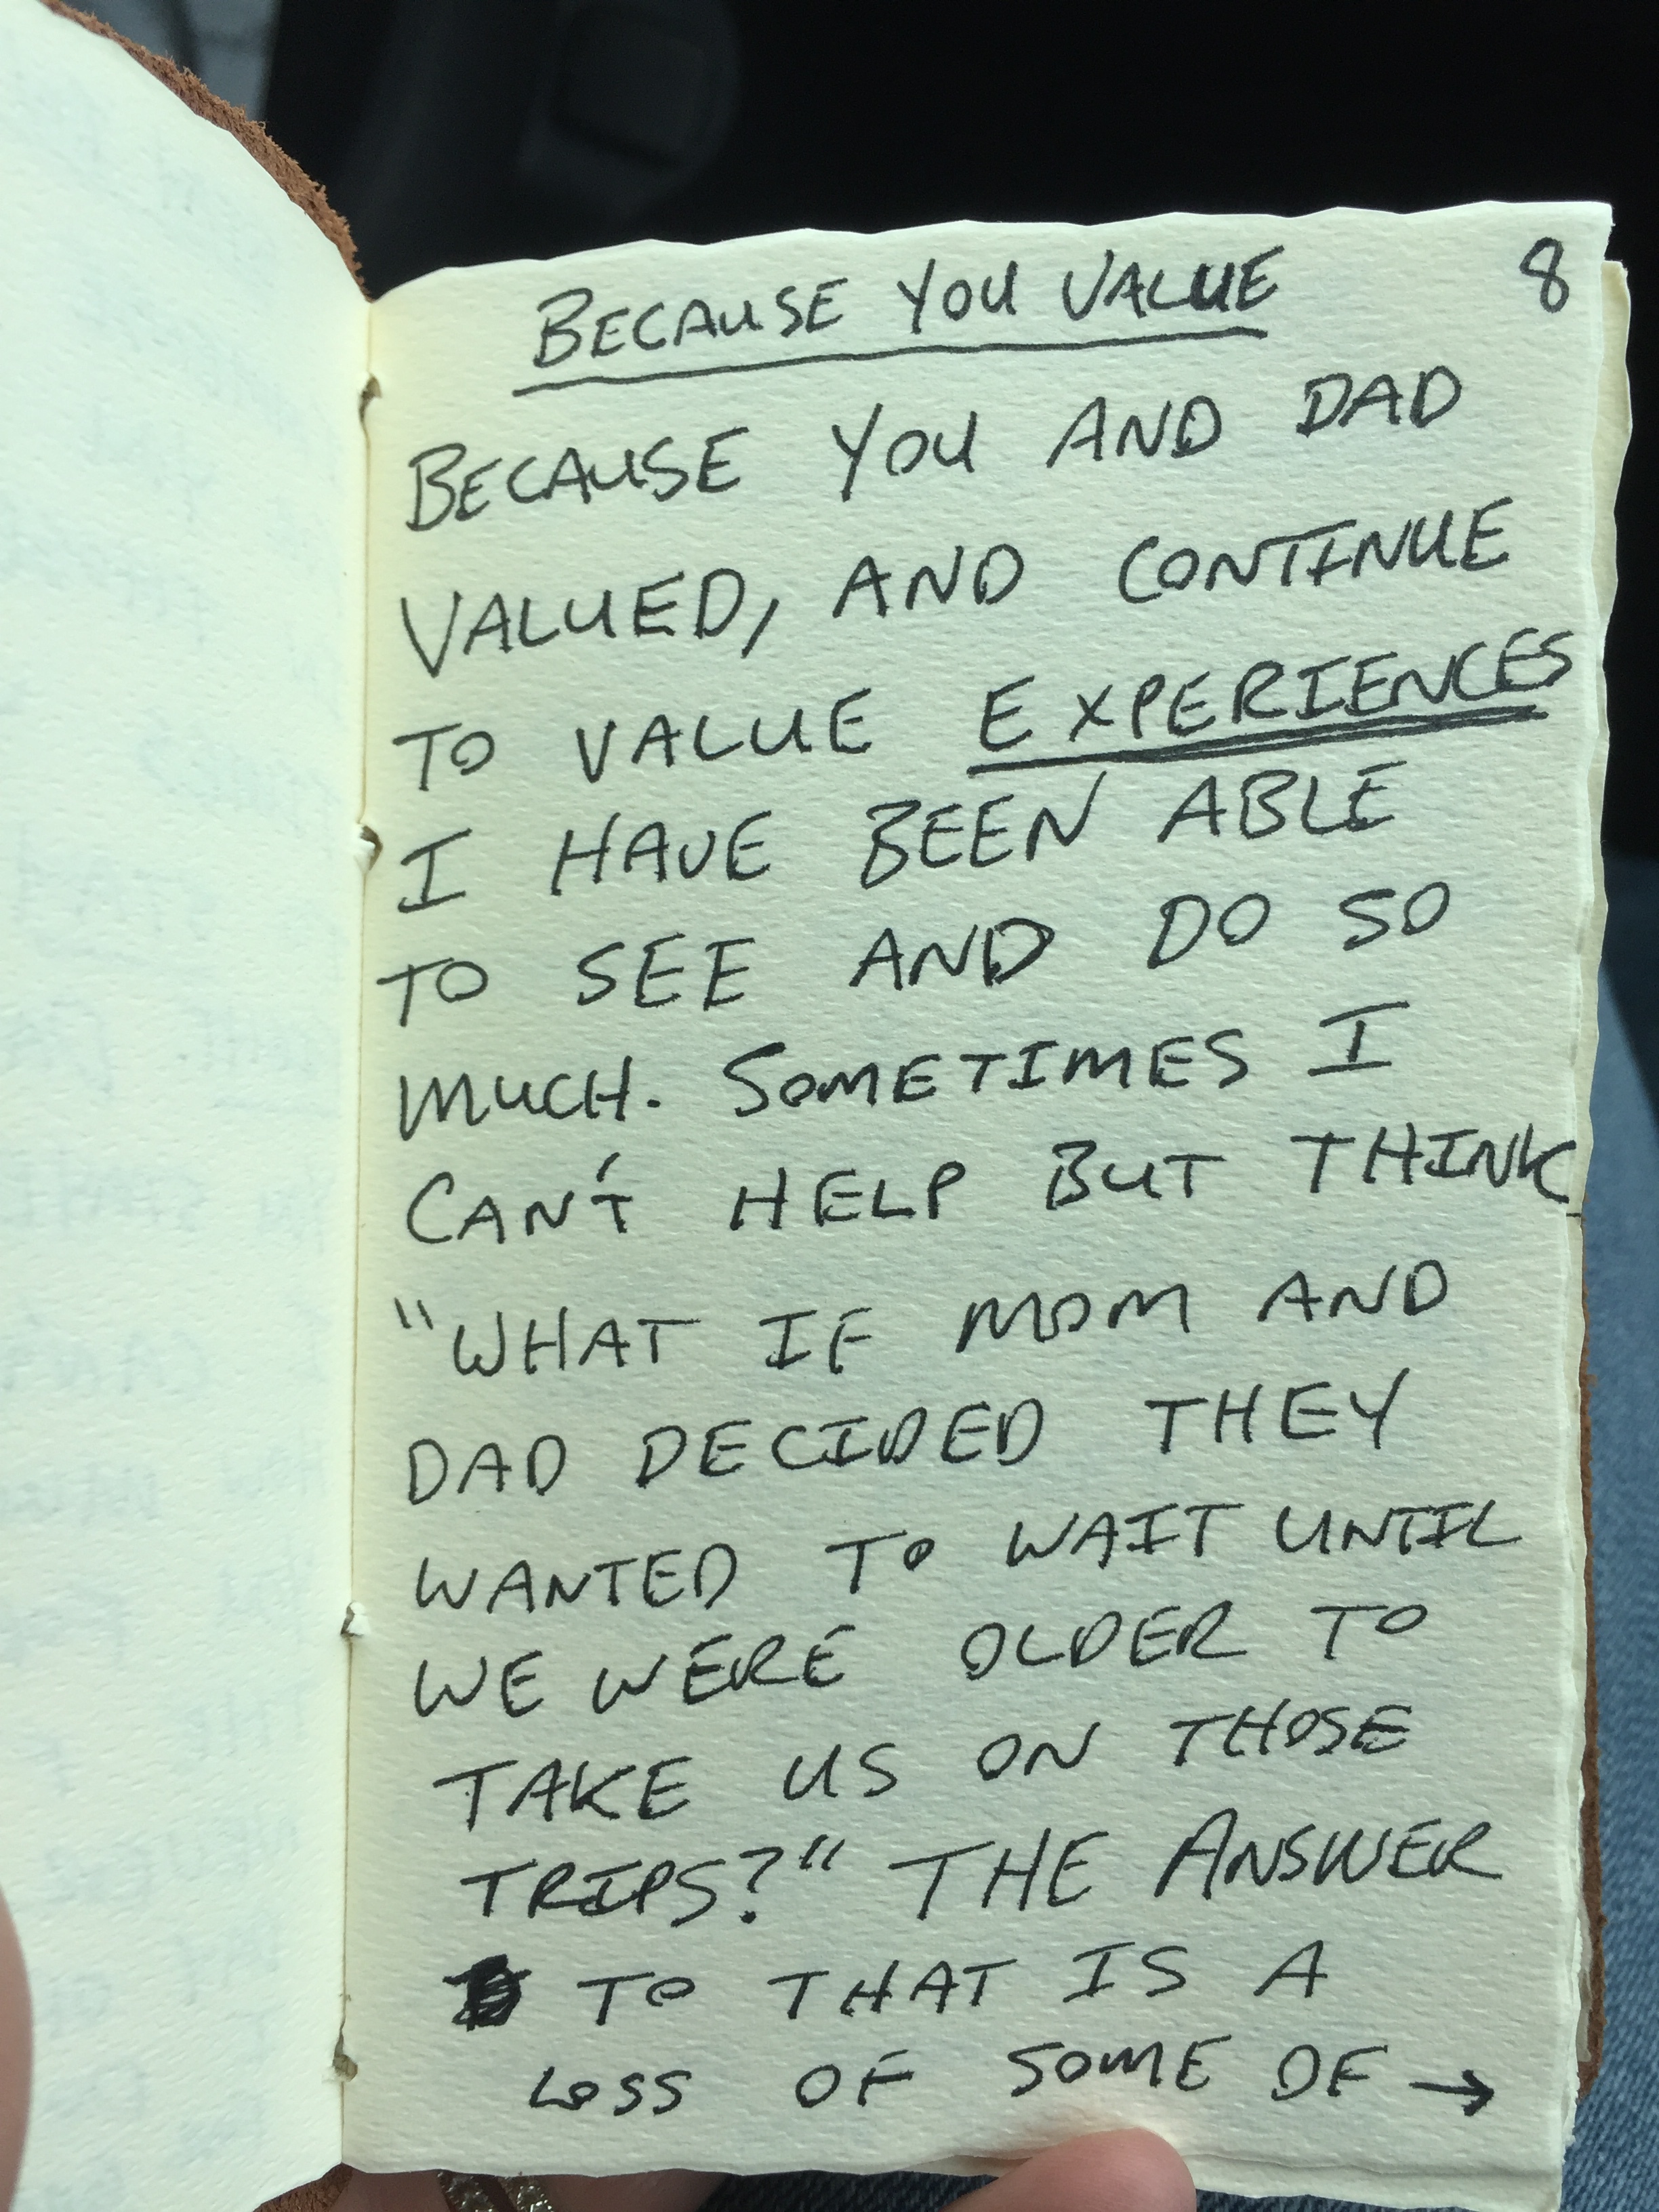 BECAUSE YOU VALUE 8
BECAUSE YOU AND DAD
VALUED, AND CONTINUE
TO VALUE EXPERIENCES
I HAVE BEEN ABLE
TO SEE AND DO SO
MUCH. SOMETIMES I
CAN'T HELP BUT THINK
"WHAT IF MOM AND
DAD DECIDED THEY
WANTED TO WAIT UNTIL
WE WERE OLDER TO
TAKE US ON THOSE
TRIPS?" THE ANSWER
TO THAT IS A
LOSS OF SOME OF →